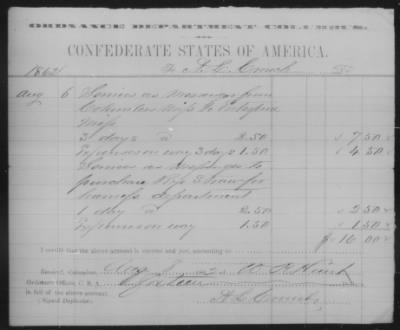 ORDNANCE DEPARTMENT COLUMBUS,
CONFEDERATE STATES OF AMERICA.
1862 To A. C. Dr
Aug 6 Services as Messenger from
Columbus Miss to
Miss
3 days a 2.50 $ 7.50
Expenses on way 3 days 1.50 $ 4.50
Services as to
purchase for
harness department
1 day a 2.50 $ 2.50
Expenses on way 1.50 $ 1.50
$ 16.00
I certify that the above account is correct and just, amounting to
Received, Columbus, Aug 8 2 W R Hunt
Ordnance Officer, C. S. A. Sixteen
in full of the above account.
(Signed Duplicate) A. C.